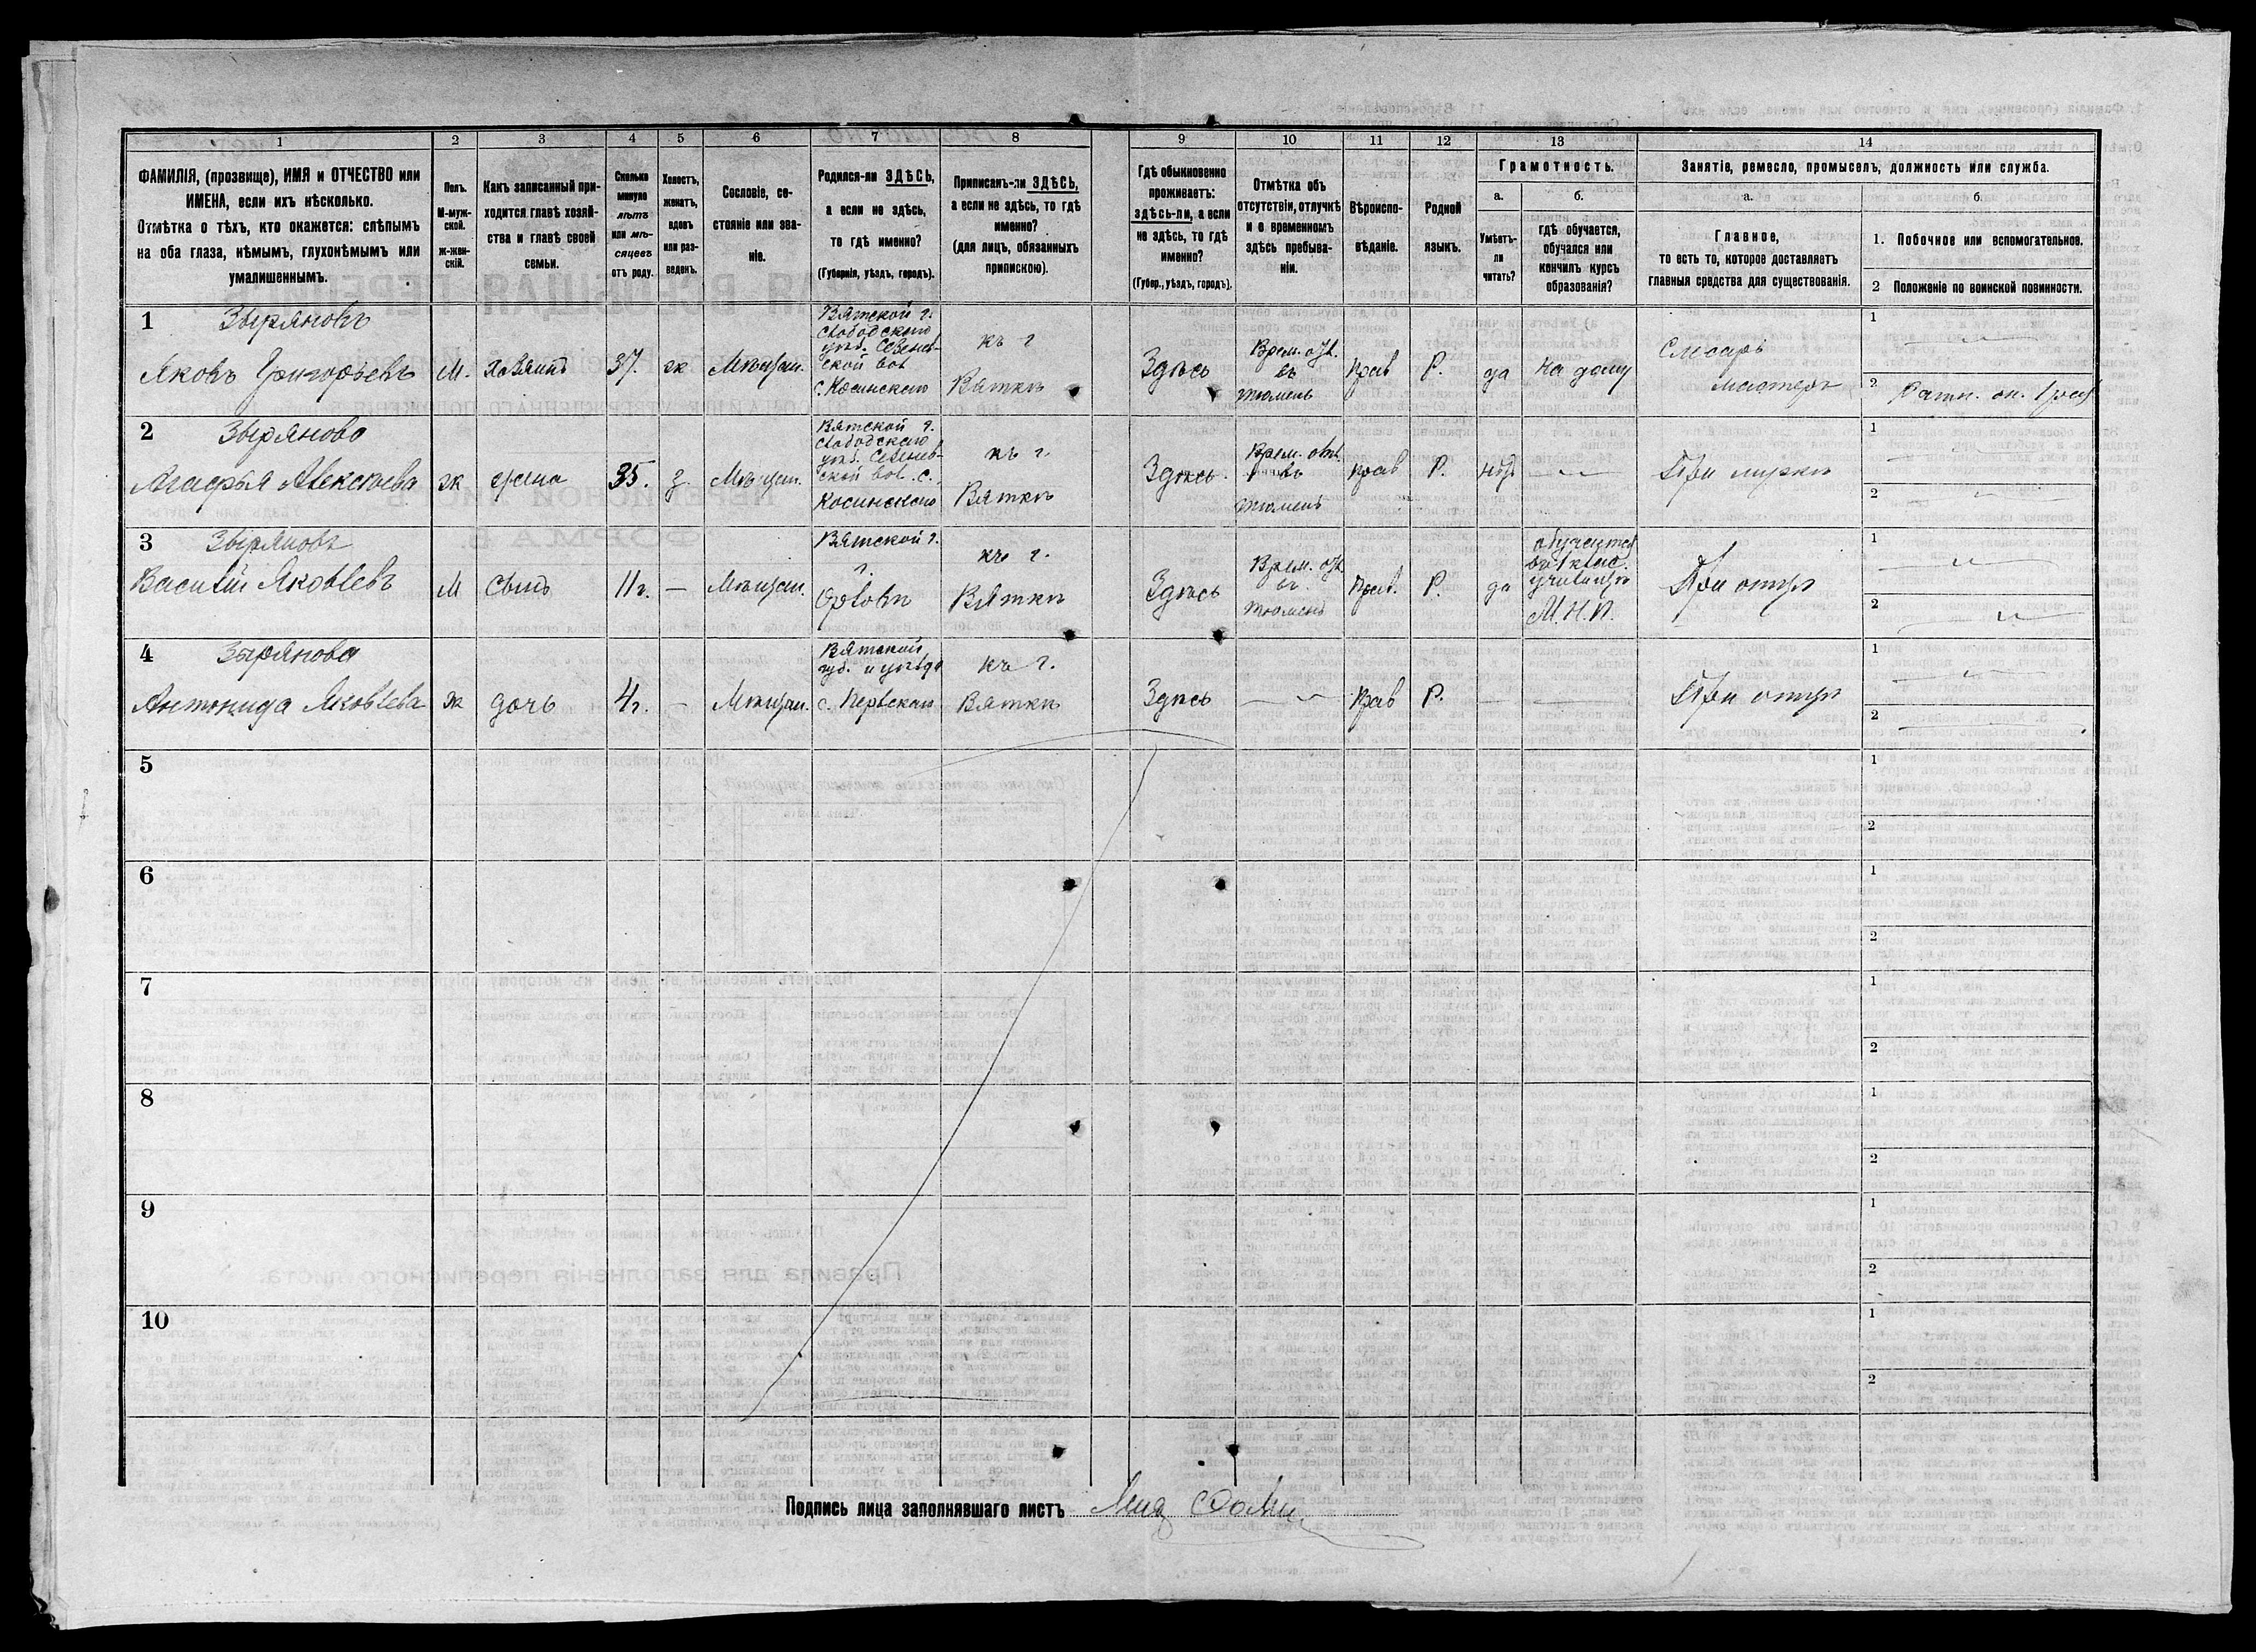 1 2 3 4 5 6 7 8 9 10 11 12 13 14
ФАМИЛІЯ, (прозвище), ИМЯ и ОТЧЕСТВО или
ИМЕНА, если ихъ нѣсколько.
Отмѣтка о тѣхъ, кто окажется: слѣпымъ
на оба глаза, нѣмымъ, глухонѣмымъ или
умалишеннымъ.
Полъ.
М-муж-
ской.
ж-жен-
скій.
Какъ записанный при-
ходится главѣ хозяй-
ства и главѣ своей
семьи.
Сколько
минуло
лѣтъ
или мѣ-
сяцевъ
отъ роду.
Холостъ,
женатъ,
вдовъ
или раз-
веденъ.
Сословіе, со-
стояніе или зва-
ніе.
Родился-ли ЗДѢСЬ,
а если не здѣсь,
то гдѣ именно?
(Губернія, уѣздъ, городъ).
Приписанъ-ли ЗДѢСЬ,
а если не здѣсь, то гдѣ
именно?
(для лицъ, обязанныхъ
припискою).
Гдѣ обыкновенно
проживаетъ:
здѣсь-ли, а если
не здѣсь, то гдѣ
именно?
(Губер., уѣздъ, городъ).
Отмѣтка объ
отсутствіи, отлучкѣ
и о временномъ
здѣсь пребыва-
ніи.
Вѣроиспо-
вѣданіе.
Родной
языкъ.
Грамотность.
а.
Умѣетъ-
ли
читать?
б.
гдѣ обучается,
обучался или
кончилъ курсъ
образованія?
Занятіе, ремесло, промыселъ, должность или служба.
а.
Главное,
то есть то, которое доставляетъ
главныя средства для существованія.
б.
1. Побочное или вспомогательное.
2 Положеніе по воинской повинности.
1 Зыряновъ
Яковъ Григорьевъ
М.
хозяинъ
37.
ж
Мѣщан.
Вятской г.
Слободского
уѣзд. Сезенев-
ской вол
с. Косинского
къ г
Вяткѣ
Здѣсь
Врем.
въ
Тюмень
Прав
Р.
да
на дому
Слесарь
мастеръ
1
2 Ратн. оп. 1 раз
2 Зырянова
Агафья Алексѣева
ж
жена
35.
з.
Мѣщан.
Вятской г.
Слободского
уѣзд. Сезенев-
ской вол. с.
Косинского
къ г.
Вяткѣ
Здѣсь.
Врем.
въ
Тюмень
Прав
Р.
нѣт
При мужѣ
1
2
3 Зыряновъ
Василій Яковлевъ
М
Сынъ
11 г.
—
Мѣщан.
Вятской г.
г.
Орловѣ
къ г.
Вяткѣ
Здѣсь
Врем.
въ
Тюмень
Прав.
Р.
да
обучается
въ 1 клас.
училищѣ
М. Н. П.
При отцѣ
1
2
4 Зырянова
Антонида Яковлева
ж
дочь
4 г.
—
Мѣщан.
Вятской
губ. и уѣзда
с.
къ г.
Вяткѣ
Здѣсь
—
Прав
Р.
—
—
При отцѣ
1
2
5
1
2
6
1
2
7
1
2
8
1
2
9
1
2
10
1
2
Подпись лица заполнявшаго листъ